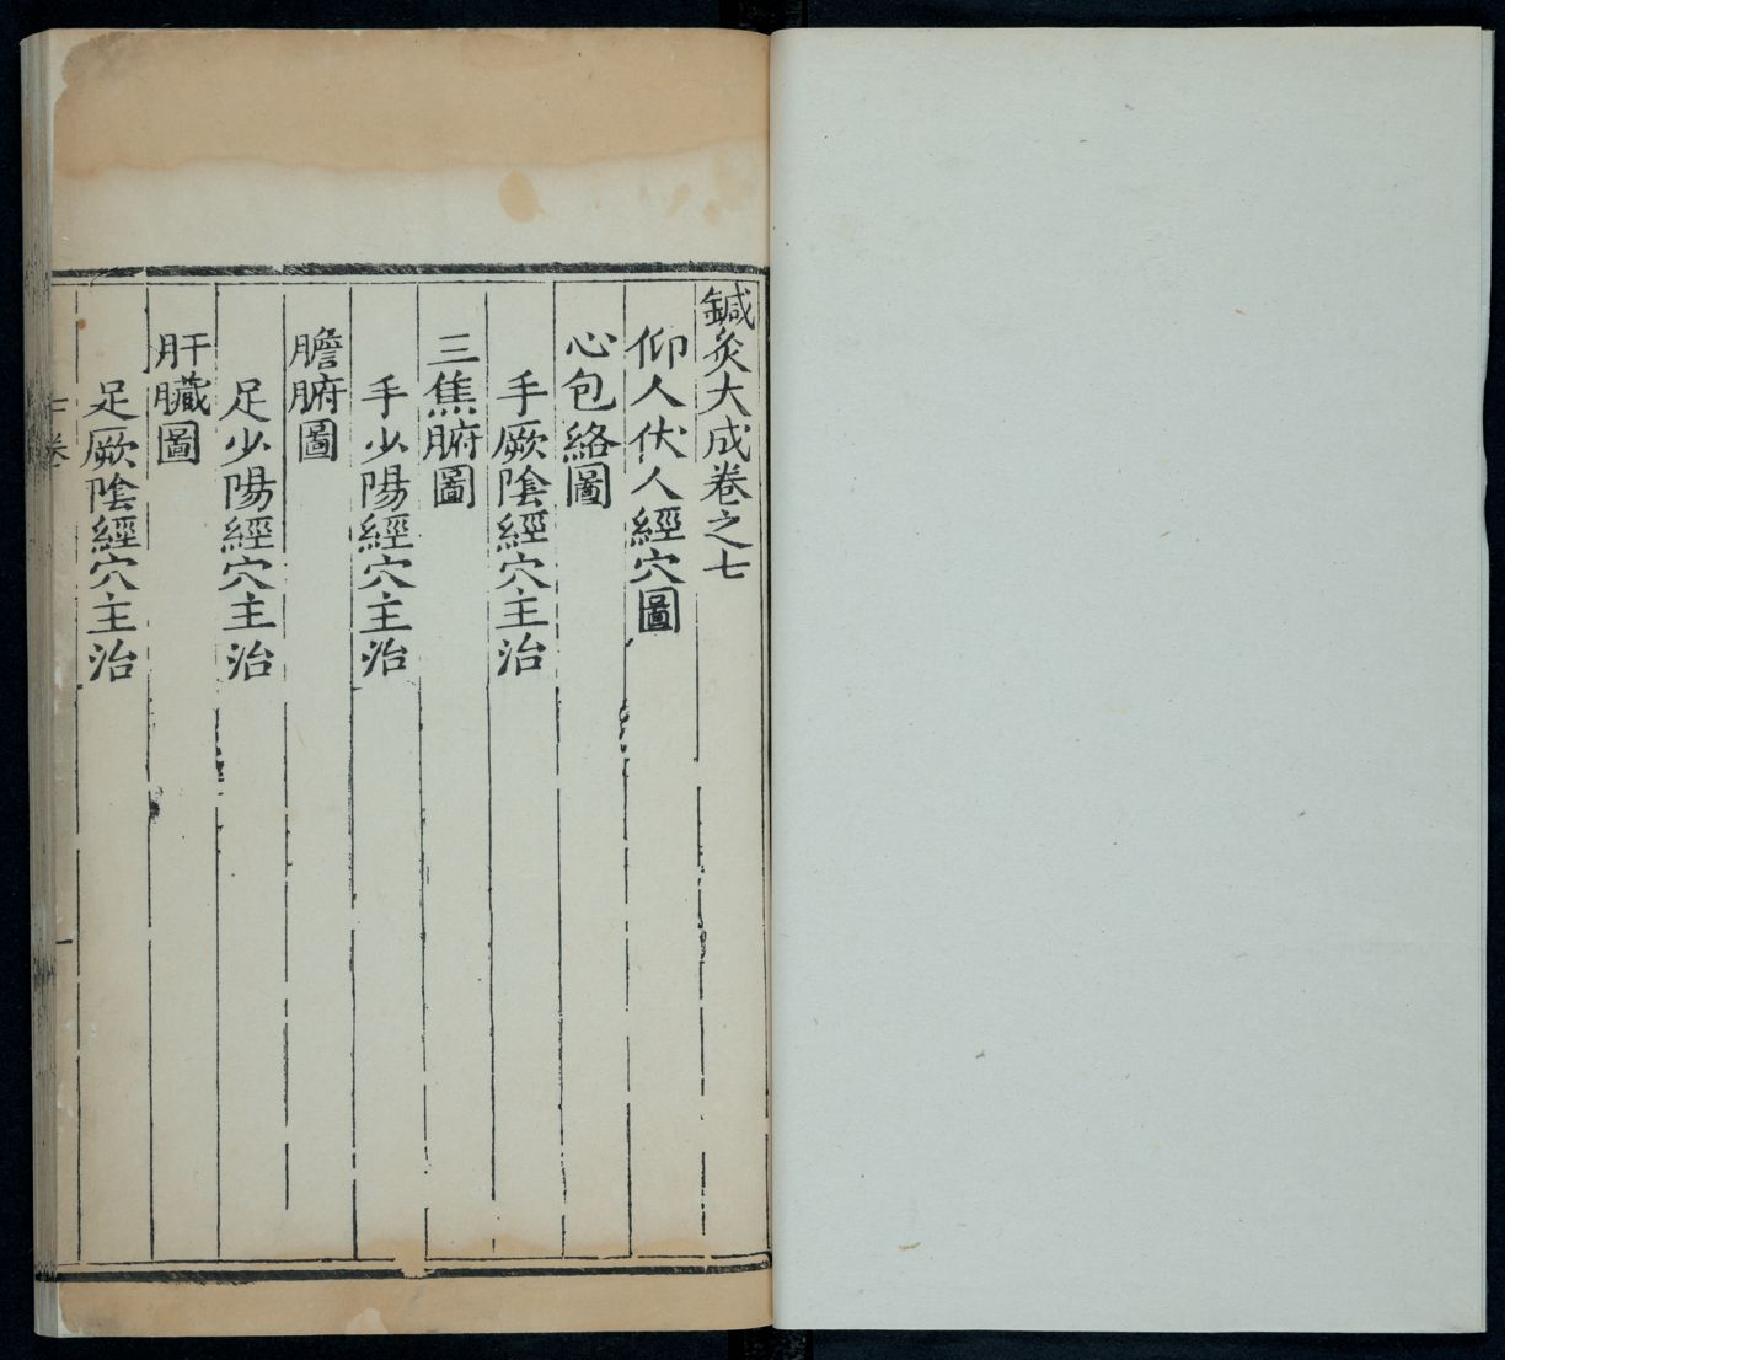 鍼灸大成卷之七
仰人伏人經穴圖
心包絡圖
手厥陰經穴主治
三焦腑圖
手少陽經穴主治
膽腑圖
足少陽經穴主治
肝臟圖
足厥陰經穴主治
七卷
一